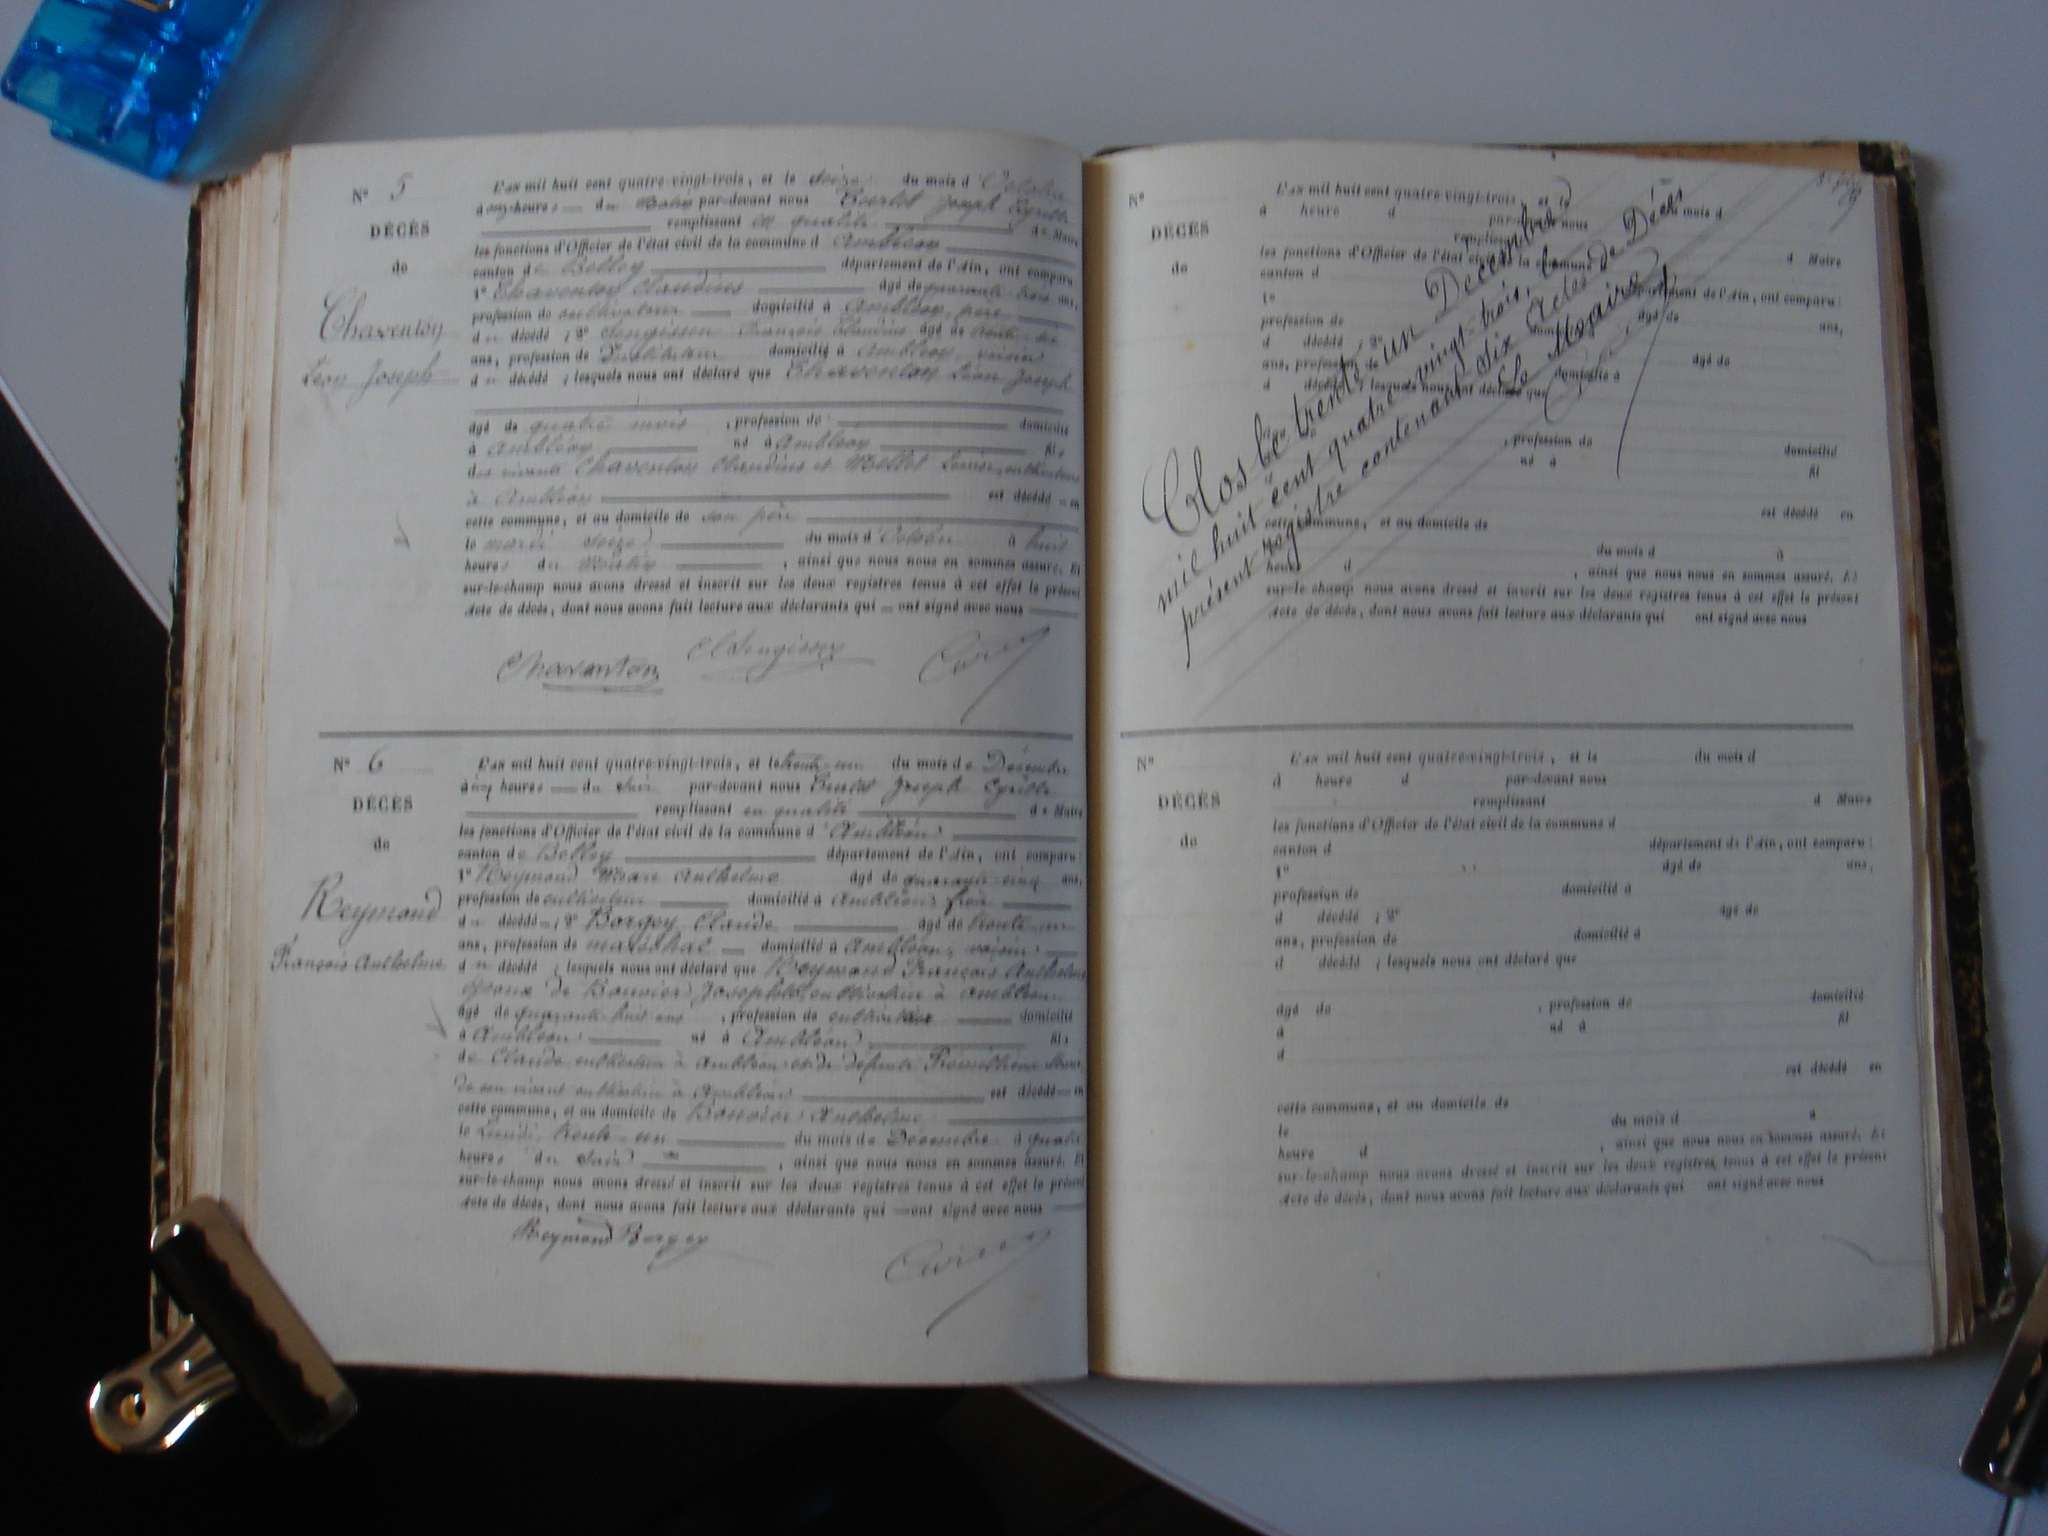 Nº 5
DÉCÈS
de
Chaventon
Léon Joseph
L'an mil huit cent quatre-vingt-trois, et le seize du mois d'Octobre
à heures du Matin par-devant nous Joseph Cyrille
remplissant en qualité de Maire
les fonctions d'Officier de l'état civil de la commune d'Ambléon
canton de Belley département de l'Ain, ont comparu:
1º Chaventon Claudius âgé de quarante-trois ans,
profession de cultivateur domicilié à Ambléon, père
du décédé ; 2º François Claudius âgé de trente-six
ans, profession de Instituteur domicilié à Ambléon, voisin
du décédé ; lesquels nous ont déclaré que Chaventon Léon Joseph
âgé de quatre mois, profession de domicilié
à Ambléon né à Ambléon fils
des vivants Chaventon Claudius et Mollet Louise, cultivateurs
à Ambléon est décédé en
cette commune, et au domicile de son père
le mardi seize du mois d'Octobre à huit
heures du Matin, ainsi que nous nous en sommes assuré. Et
sur-le-champ nous avons dressé et inscrit sur les deux registres tenus à cet effet le présent
Acte de décès, dont nous avons fait lecture aux déclarants qui ont signé avec nous
Chaventon
Nº 6
DÉCÈS
de
Reymond
François Anthelme
L'an mil huit cent quatre-vingt-trois, et le trente-un du mois de Décembre
à cinq heures du Soir par-devant nous Joseph Cyrille
remplissant en qualité de Maire
les fonctions d'Officier de l'état civil de la commune d'Ambléon
canton de Belley département de l'Ain, ont comparu:
1º Reymond Marc Anthelme âgé de quarante-cinq ans,
profession de cultivateur domicilié à Ambléon, frère
du décédé ; 2º Borgey Claude âgé de trente-un
ans, profession de maréchal domicilié à Ambléon, voisin
du décédé ; lesquels nous ont déclaré que Reymond François Anthelme
époux de Bouvier Josephte, cultivateur à Ambléon
âgé de quarante-huit ans, profession de cultivateur domicilié
à Ambléon né à Ambléon fils
de Claude cultivateur à Ambléon et de défunte
de son vivant à Ambléon est décédé en
cette commune, et au domicile de Anthelme
le Lundi trente-un du mois de Décembre à quatre
heures du Soir, ainsi que nous nous en sommes assuré. Et
sur-le-champ nous avons dressé et inscrit sur les deux registres tenus à cet effet le présent
Acte de décès, dont nous avons fait lecture aux déclarants qui ont signé avec nous
Reymond Borgey
Nº
DÉCÈS
de
L'an mil huit cent quatre-vingt-trois, et le du mois d
à heure d par-devant nous
remplissant d Maire
les fonctions d'Officier de l'état civil de la commune d
canton d département de l'Ain, ont comparu:
1º âgé de ans,
profession de domicilié à
d décédé ; 2º âgé de
ans, profession de domicilié à
d décédé ; lesquels nous ont déclaré que
, profession de domicilié
né à fil
est décédé en
cette commune, et au domicile de
du mois d à
heure d , ainsi que nous nous en sommes assuré. Et
sur-le-champ nous avons dressé et inscrit sur les deux registres tenus à cet effet le présent
Acte de décès, dont nous avons fait lecture aux déclarants qui ont signé avec nous
Clos le trente un Décembre
mil huit cent quatre-vingt-trois, le
présent registre contenant Six Actes de Décès
Le Maire
Nº
DÉCÈS
de
L'an mil huit cent quatre-vingt-trois, et le du mois d
à heure d par-devant nous
remplissant d Maire
les fonctions d'Officier de l'état civil de la commune d
canton d département de l'Ain, ont comparu:
1º âgé de ans,
profession de domicilié à
d décédé ; 2º âgé de
ans, profession de domicilié à
d décédé ; lesquels nous ont déclaré que
âgé de , profession de domicilié
à né à fil
d
est décédé en
cette commune, et au domicile de
le du mois d à
heure d , ainsi que nous nous en sommes assuré. Et
sur-le-champ nous avons dressé et inscrit sur les deux registres tenus à cet effet le présent
Acte de décès, dont nous avons fait lecture aux déclarants qui ont signé avec nous